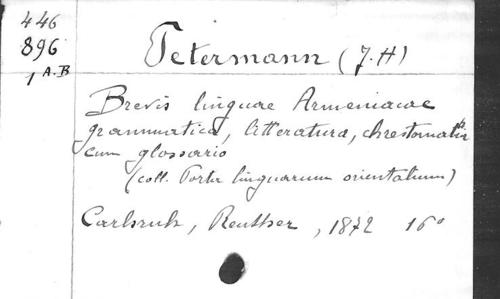 446
896
1 A.B
Petermann (J.H)
Brevis linguae Armeniacae
grammatica, litteratura, chrestomathia
cum glossario
(coll. Porta linguarum orientalium)
Carlsruh, Reuther, 1872 16°